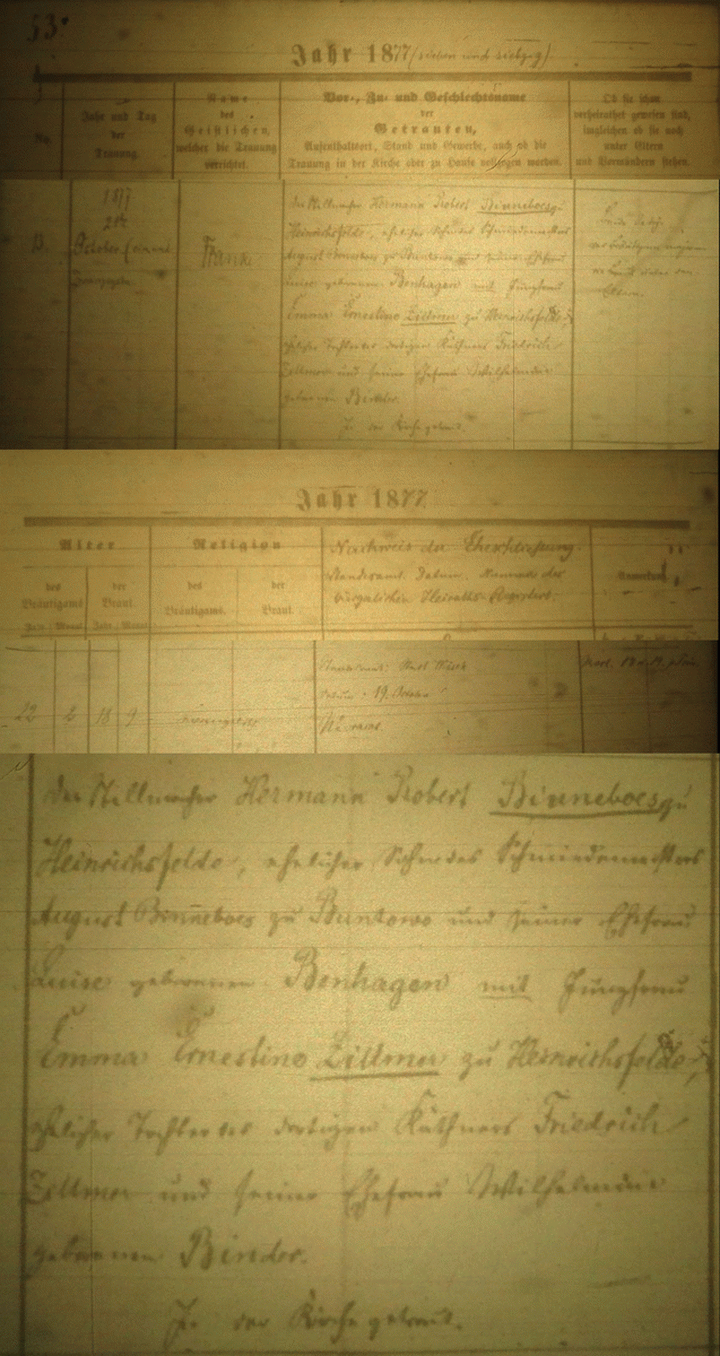 53.
Jahr 1877 (sieben und siebzig).
No.
Jahr und Tag
der
Trauung.
Name
des
Geistlichen,
welcher die Trauung
verrichtet.
Vor-, Zu- und Geschlechtsname
der
Getrauten,
Aufenthaltsort, Stand und Gewerbe, auch ob die
Trauung in der Kirche oder zu Hause vollzogen worden.
Ob sie schon
verheirathet gewesen sind,
imgleichen ob sie noch
unter Eltern
und Vormündern stehen.
13.
1877
October
Frank
der Stellmacher Hermann Robert Binneboes zu
Heinrichsfelde, ehelicher Sohn des Schmiedemeisters
August Binneboes zu Buntowo und seiner Ehefrau
Luise geborenen Benhagen mit Jungfrau
Emma Ernestine Zillmer zu Heinrichsfelde,
ehelicher Tochter des dortigen Käthners Friedrich
Zillmer und seiner Ehefrau Wilhelmine
geborenen Binder.
In der Kirche getraut.
Jahr 1877.
Alter
des
Bräutigams
Jahr Monat
der
Braut
Jahr Monat
Religion
des
Bräutigams.
der
Braut
Nachweis der Eheschließung.
Standesamt. Datum. Nummer des
bürgerlichen Heiraths-Registers.
22 2 18 9
evangelisch
Standesamt:
Datum: 19. October
der Stellmacher Hermann Robert Binneboes zu
Heinrichsfelde, ehelicher Sohn des Schmiedemeisters
August Binneboes zu Buntowo und seiner Ehefrau
Luise geborenen Benhagen mit Jungfrau
Emma Ernestine Zillmer zu Heinrichsfelde,
ehelicher Tochter des dortigen Käthners Friedrich
Zillmer und seiner Ehefrau Wilhelmine
geborenen Binder.
In der Kirche getraut.